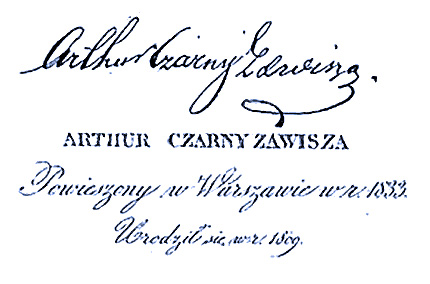 Arthur Czarny Zawisza.
ARTHUR CZARNY ZAWISZA
Powieszony w Warszawie w r. 1833.
Urodził się w r. 1809.